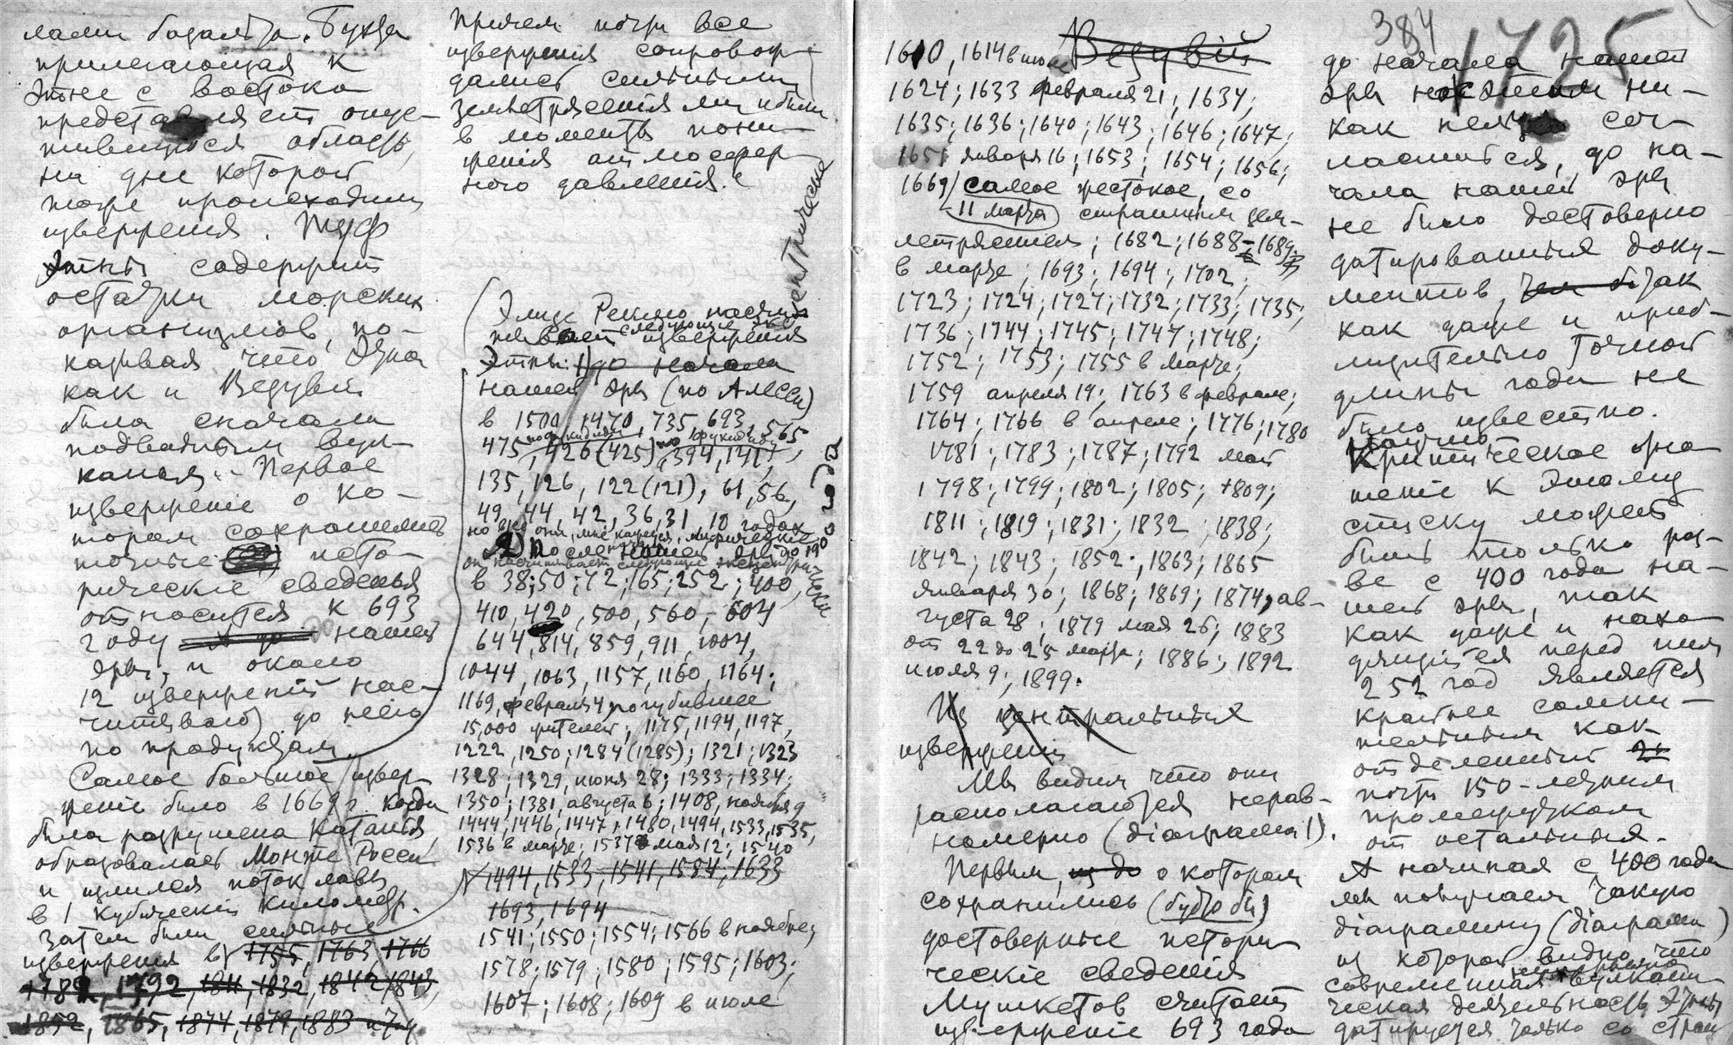 лами базальта. Бухта
прилегающая к
Этне с востока
представляет опус-
тившуюся область,
на дне которой
тоже происходили
извержения. Туф
Этны содержит
остатки морских
организмов, по-
казывая, что Этна
как и Везувий
была сначала
подводным вул-
каном. Первое
извержение о ко-
тором сохранились
точные исто-
рические сведенья
относится к 693
году нашей
эры, и около
12 извержений нас-
читывают до него
по продуктам
Самое большое извер-
жение было в 1669 г. когда
была разрушена Катания,
образовалась Монте Росси
и излился поток лавы
в 1 кубический километр.
Затем были сильные
извержения в 1755, 1763 1766
1782, 1792, 1811, 1832, 1842, 1843,
1852, 1865, 1874, 1879, 1883
Причем почти все
извержения сопровож-
дались сильными
землетрясениями и были
в моменты пони-
жения атмосфер-
ного давления.
Элизе Реклю насчи-
тывает следующие извержения
Этны: 1) до начала
нашей эры (по Алесси)
в 1500, 1470, 735, 693, 565,
475, 426 (425), 394, 141,
135, 126, 122 (121), 61, 56,
49, 44, 42, 36, 31, 10 годах
но все они, мне кажется, мифические
2) После начала нашей эры до 1900 года
он насчитывает следующие эксцентрические
в 38; 50; 72; 165; 252; 400,
410, 420, 500, 560, 604
644, 814, 859, 911, 1004,
1044, 1063, 1157, 1160, 1164;
1169, февраля 4 погубившее
15,000 жителей; 1175, 1194, 1197,
1222, 1250; 1284 (1285); 1321; 1323
1328; 1329, июня 28; 1333; 1334;
1350; 1381, августа 6; 1408, ноября 9
1444, 1446, 1447; 1480, 1494, 1533, 1535,
1536 в марте; 1537 мая 12; 1540
1494, 1533, 1541, 1554, 1633
1693, 1694
1541; 1550; 1554; 1566 в ноябре;
1578; 1579; 1580; 1595; 1603;
1607; 1608; 1609 в июле
Везувий
1610, 1614 в июле
1624; 1633 февраля 21; 1634;
1635; 1636; 1640; 1643; 1646; 1647,
1651 января 16; 1653; 1654; 1656;
1669 самое жестокое, со
11 марта страшным зем-
летрясением; 1682; 1688; 1689
в марте; 1693; 1694; 1702;
1723; 1724; 1727; 1732; 1733; 1735;
1736; 1744; 1745; 1747; 1748;
1752; 1753; 1755 в марте;
1759 апреля 19; 1763 в феврале;
1764; 1766 в апреле; 1776; 1780
1781; 1783; 1787; 1792 май
1798; 1799; 1802; 1805; 1809;
1811; 1819; 1831; 1832; 1838;
1842; 1843; 1852; 1863; 1865
января 30; 1868; 1869; 1874, ав-
густа 28; 1879 мая 26; 1883
от 22 до 25 марта; 1886; 1892
июля 9; 1899.
Из центральных
извержений
Мы видим что они
располагаются нерав-
номерно (діаграмма 1).
Первым, о котором
сохранились (будто бы)
достоверные истори-
ческіе сведенія
Мушкетов считает
извержение 693 года
384
1725
до начала нашей
эры ни-
как нельзя сог-
ласиться, до на-
чала нашей эры
не было достоверно
датированных доку-
ментов, так
как даже и приб-
лизительно точной
длины года не
было известно.
Критическое отно-
шение к этому
списку может
быть только раз-
ве с 400 года на-
шей эры, так
как даже и нахо-
дящийся перед ним
252 год является
крайне сомни-
тельным как
отделенный
почти 150-летним
промежутком
от остальных.
А начиная с 400 года
мы получаем такую
діаграмму (діаграмма)
из которой видно, что
современная вулкани-
ческая деятельность Этны
датируется только со